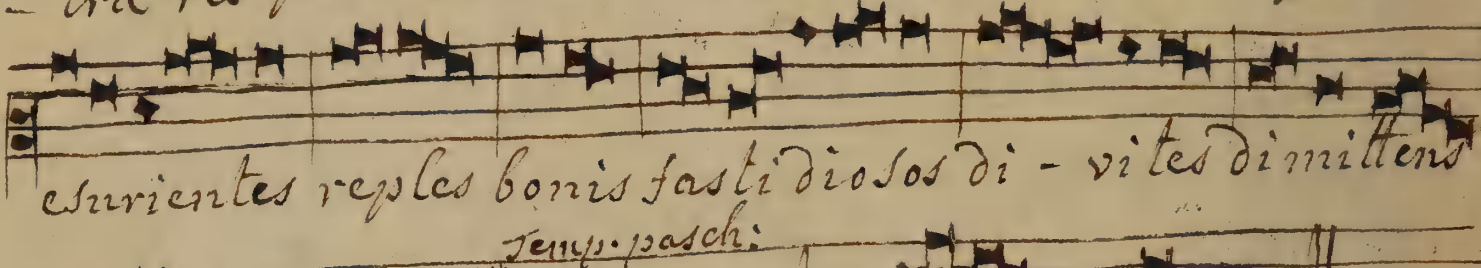 esurientes reples bonis fastidiosos di - vites dimittens
Temp. pasch: